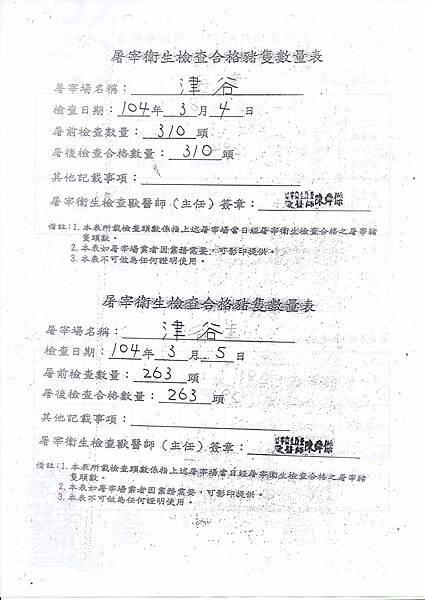 屠宰衛生檢查合格豬隻數量表
屠宰場名稱：津谷
檢查日期：104年3月4日
屠前檢查數量：310頭
屠後檢查合格數量：310頭
其他記載事項：
屠宰衛生檢查獸醫師（主任）簽章：
備註：1. 本表所載檢查頭數係指上述屠宰場當日經屠宰衛生檢查合格之屠宰豬
隻頭數。
2. 本表如屠宰場業者因業務需要，可影印提供。
3. 本表不可做為任何證明使用。
屠宰衛生檢查合格豬隻數量表
屠宰場名稱：津谷
檢查日期：104年3月5日
屠前檢查數量：263頭
屠後檢查合格數量：263頭
其他記載事項：
屠宰衛生檢查獸醫師（主任）簽章：
備註：1. 本表所載檢查頭數係指上述屠宰場當日經屠宰衛生檢查合格之屠宰豬
隻頭數。
2. 本表如屠宰場業者因業務需要，可影印提供。
3. 本表不可做為任何證明使用。